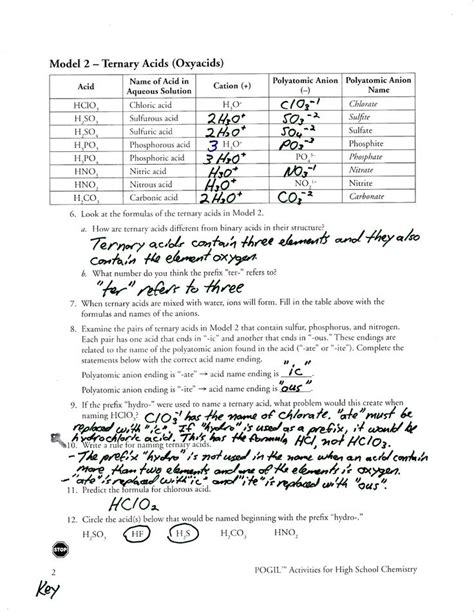 Model 2 – Ternary Acids (Oxyacids)
Acid Name of Acid in Aqueous Solution Cation (+) Polyatomic Anion (–) Polyatomic Anion Name
HClO₃ Chloric acid H₃O⁺ ClO₃⁻¹ Chlorate
H₂SO₃ Sulfurous acid 2H₃O⁺ SO₃⁻² Sulfite
H₂SO₄ Sulfuric acid 2H₃O⁺ SO₄⁻² Sulfate
H₃PO₃ Phosphorous acid 3 H₃O⁺ PO₃⁻³ Phosphite
H₃PO₄ Phosphoric acid 3H₃O⁺ PO₄³⁻ Phosphate
HNO₃ Nitric acid H₃O⁺ NO₃⁻¹ Nitrate
HNO₂ Nitrous acid H₃O⁺ NO₂¹⁻ Nitrite
H₂CO₃ Carbonic acid 2H₃O⁺ CO₃⁻² Carbonate
6. Look at the formulas of the ternary acids in Model 2.
a. How are ternary acids different from binary acids in their structure?
Ternary acids contain three elements and they also
contain the element oxygen.
b. What number do you think the prefix "ter-" refers to?
"ter" refers to three
7. When ternary acids are mixed with water, ions will form. Fill in the table above with the
formulas and names of the anions.
8. Examine the pairs of ternary acids in Model 2 that contain sulfur, phosphorus, and nitrogen.
Each pair has one acid that ends in "-ic" and another that ends in "-ous." These endings are
related to the name of the polyatomic anion found in the acid ("-ate" or "-ite"). Complete the
statements below with the correct acid name ending.
Polyatomic anion ending is "-ate" → acid name ending is "ic".
Polyatomic anion ending is "-ite" → acid name ending is "ous".
9. If the prefix "hydro-" were used to name a ternary acid, what problem would this create when
naming HClO₃? ClO₃⁻¹ has the name of Chlorate. "ate" must be
replaced with "ic". If "hydro" is used as a prefix, it would be
hydrochloric acid. This has the formula HCl, not HClO₃.
10. Write a rule for naming ternary acids.
- The prefix "hydro" is not used in the name when an acid contain
more than two elements and one of the elements is oxygen.
- "ate" is replaced with "ic" and "ite" is replaced with "ous".
11. Predict the formula for chlorous acid.
HClO₂
12. Circle the acid(s) below that would be named beginning with the prefix "hydro-."
H₂SO₃ HF H₂S H₂CO₃ HNO₂
STOP
2 POGIL™ Activities for High School Chemistry
Key